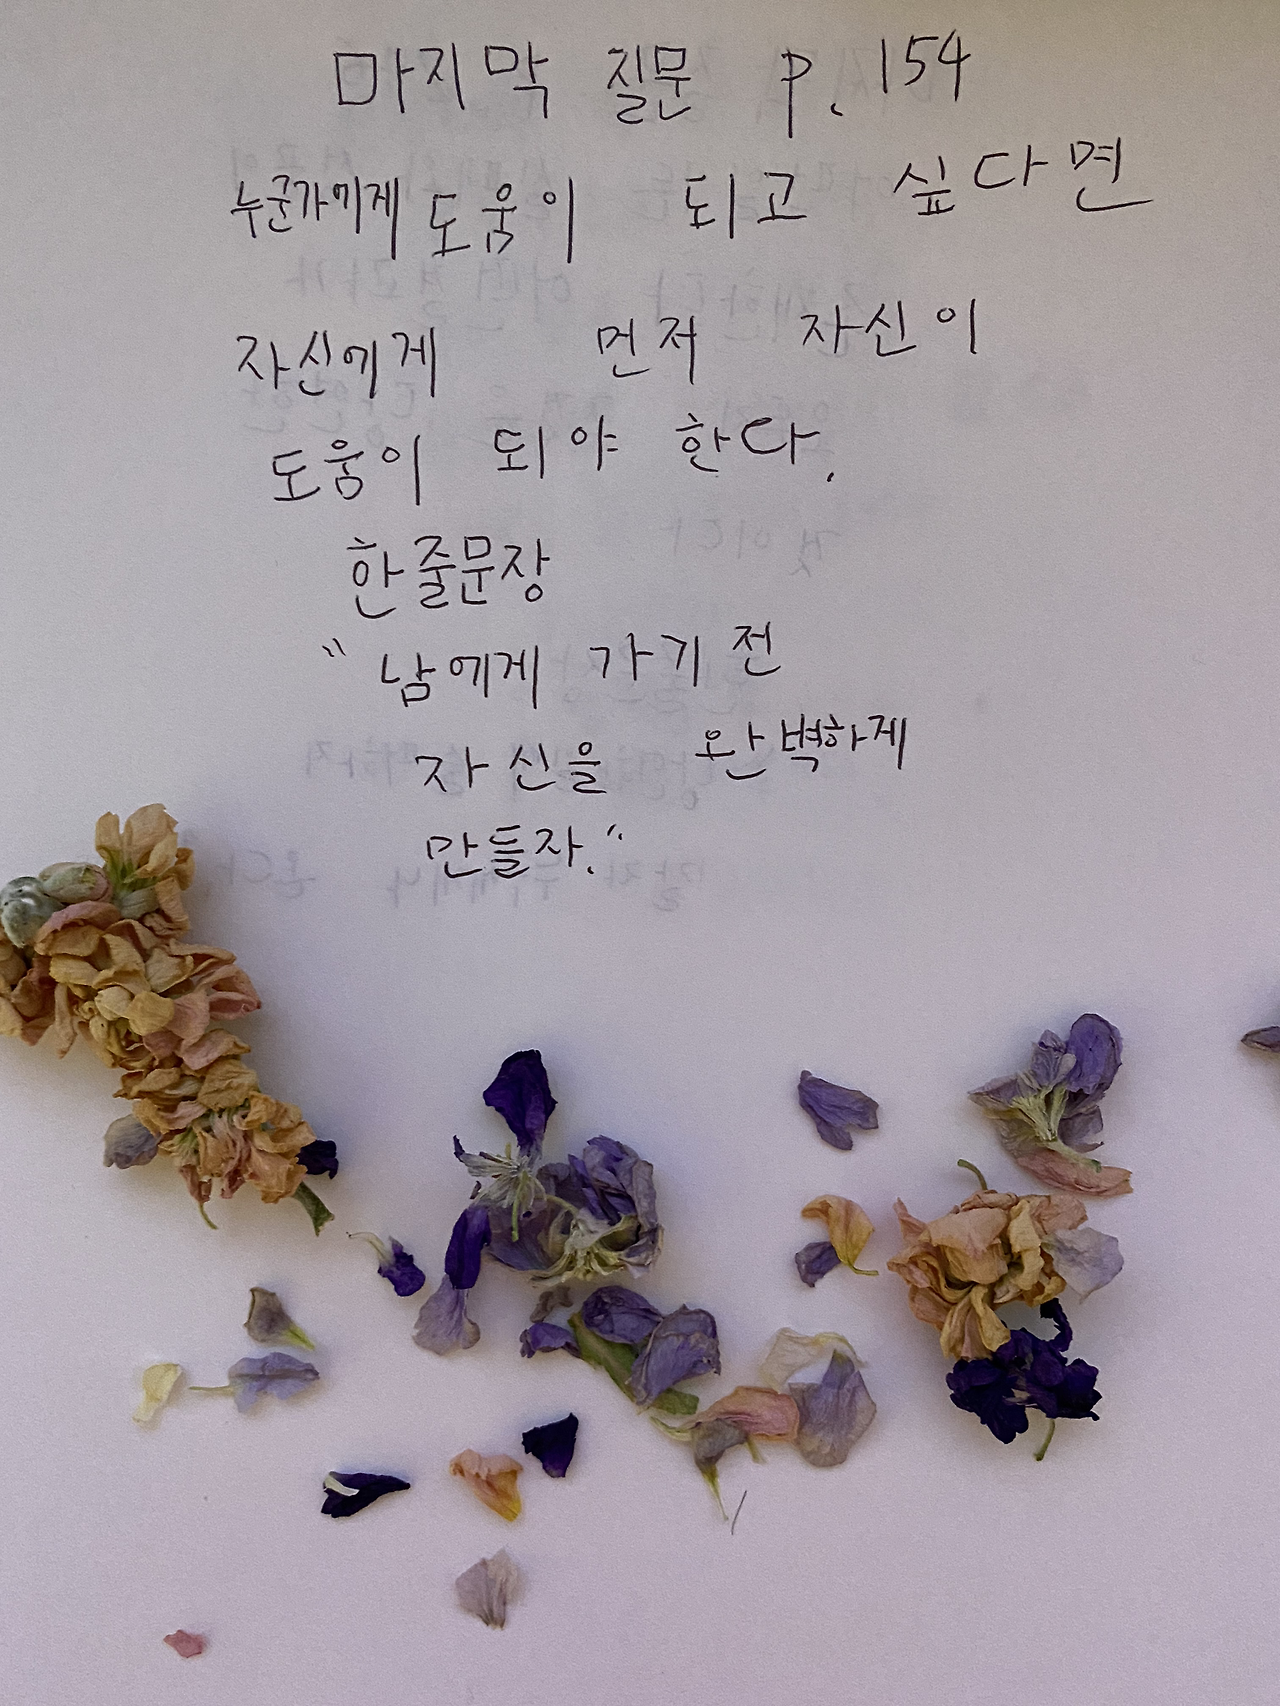 마지막 질문 p.154
누군가에게 도움이 되고 싶다면
자신에게 먼저 자신이
도움이 되야 한다.
한줄문장
"남에게 가기 전
자신을 완벽하게
만들자."